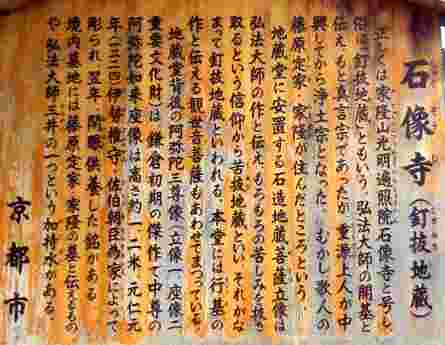 石像寺（釘抜地蔵）
正しくは家隆山光明遍照院石像寺と号し、
俗に釘抜地蔵ともいう。弘法大師の開基と
伝え、もと真言宗であったが、重源上人が中
興してから浄土宗となった。むかし歌人の
藤原定家・家隆が住んだところという。
地蔵堂に安置する石造地蔵菩薩立像は
弘法大師の作と伝え、もろもろの苦しみを抜き
取るという信仰から苦抜地蔵といい、それがな
まって釘抜地蔵といわれる。本堂には行基の
作と伝える観世音菩薩もあわせてまつっている。
地蔵堂背後の阿弥陀三尊像（立像一・座像二
重要文化財）は鎌倉初期の傑作で中尊の
阿弥陀如来座像は高さ約一・二米、元仁元
年（一二二四）伊勢権守佐伯朝臣為家によって
彫られ翌年、開眼供養した銘がある。
境内墓地には藤原定家・家隆の墓と伝えるもの
や弘法大師三井の一つという加持水がある。
京都市